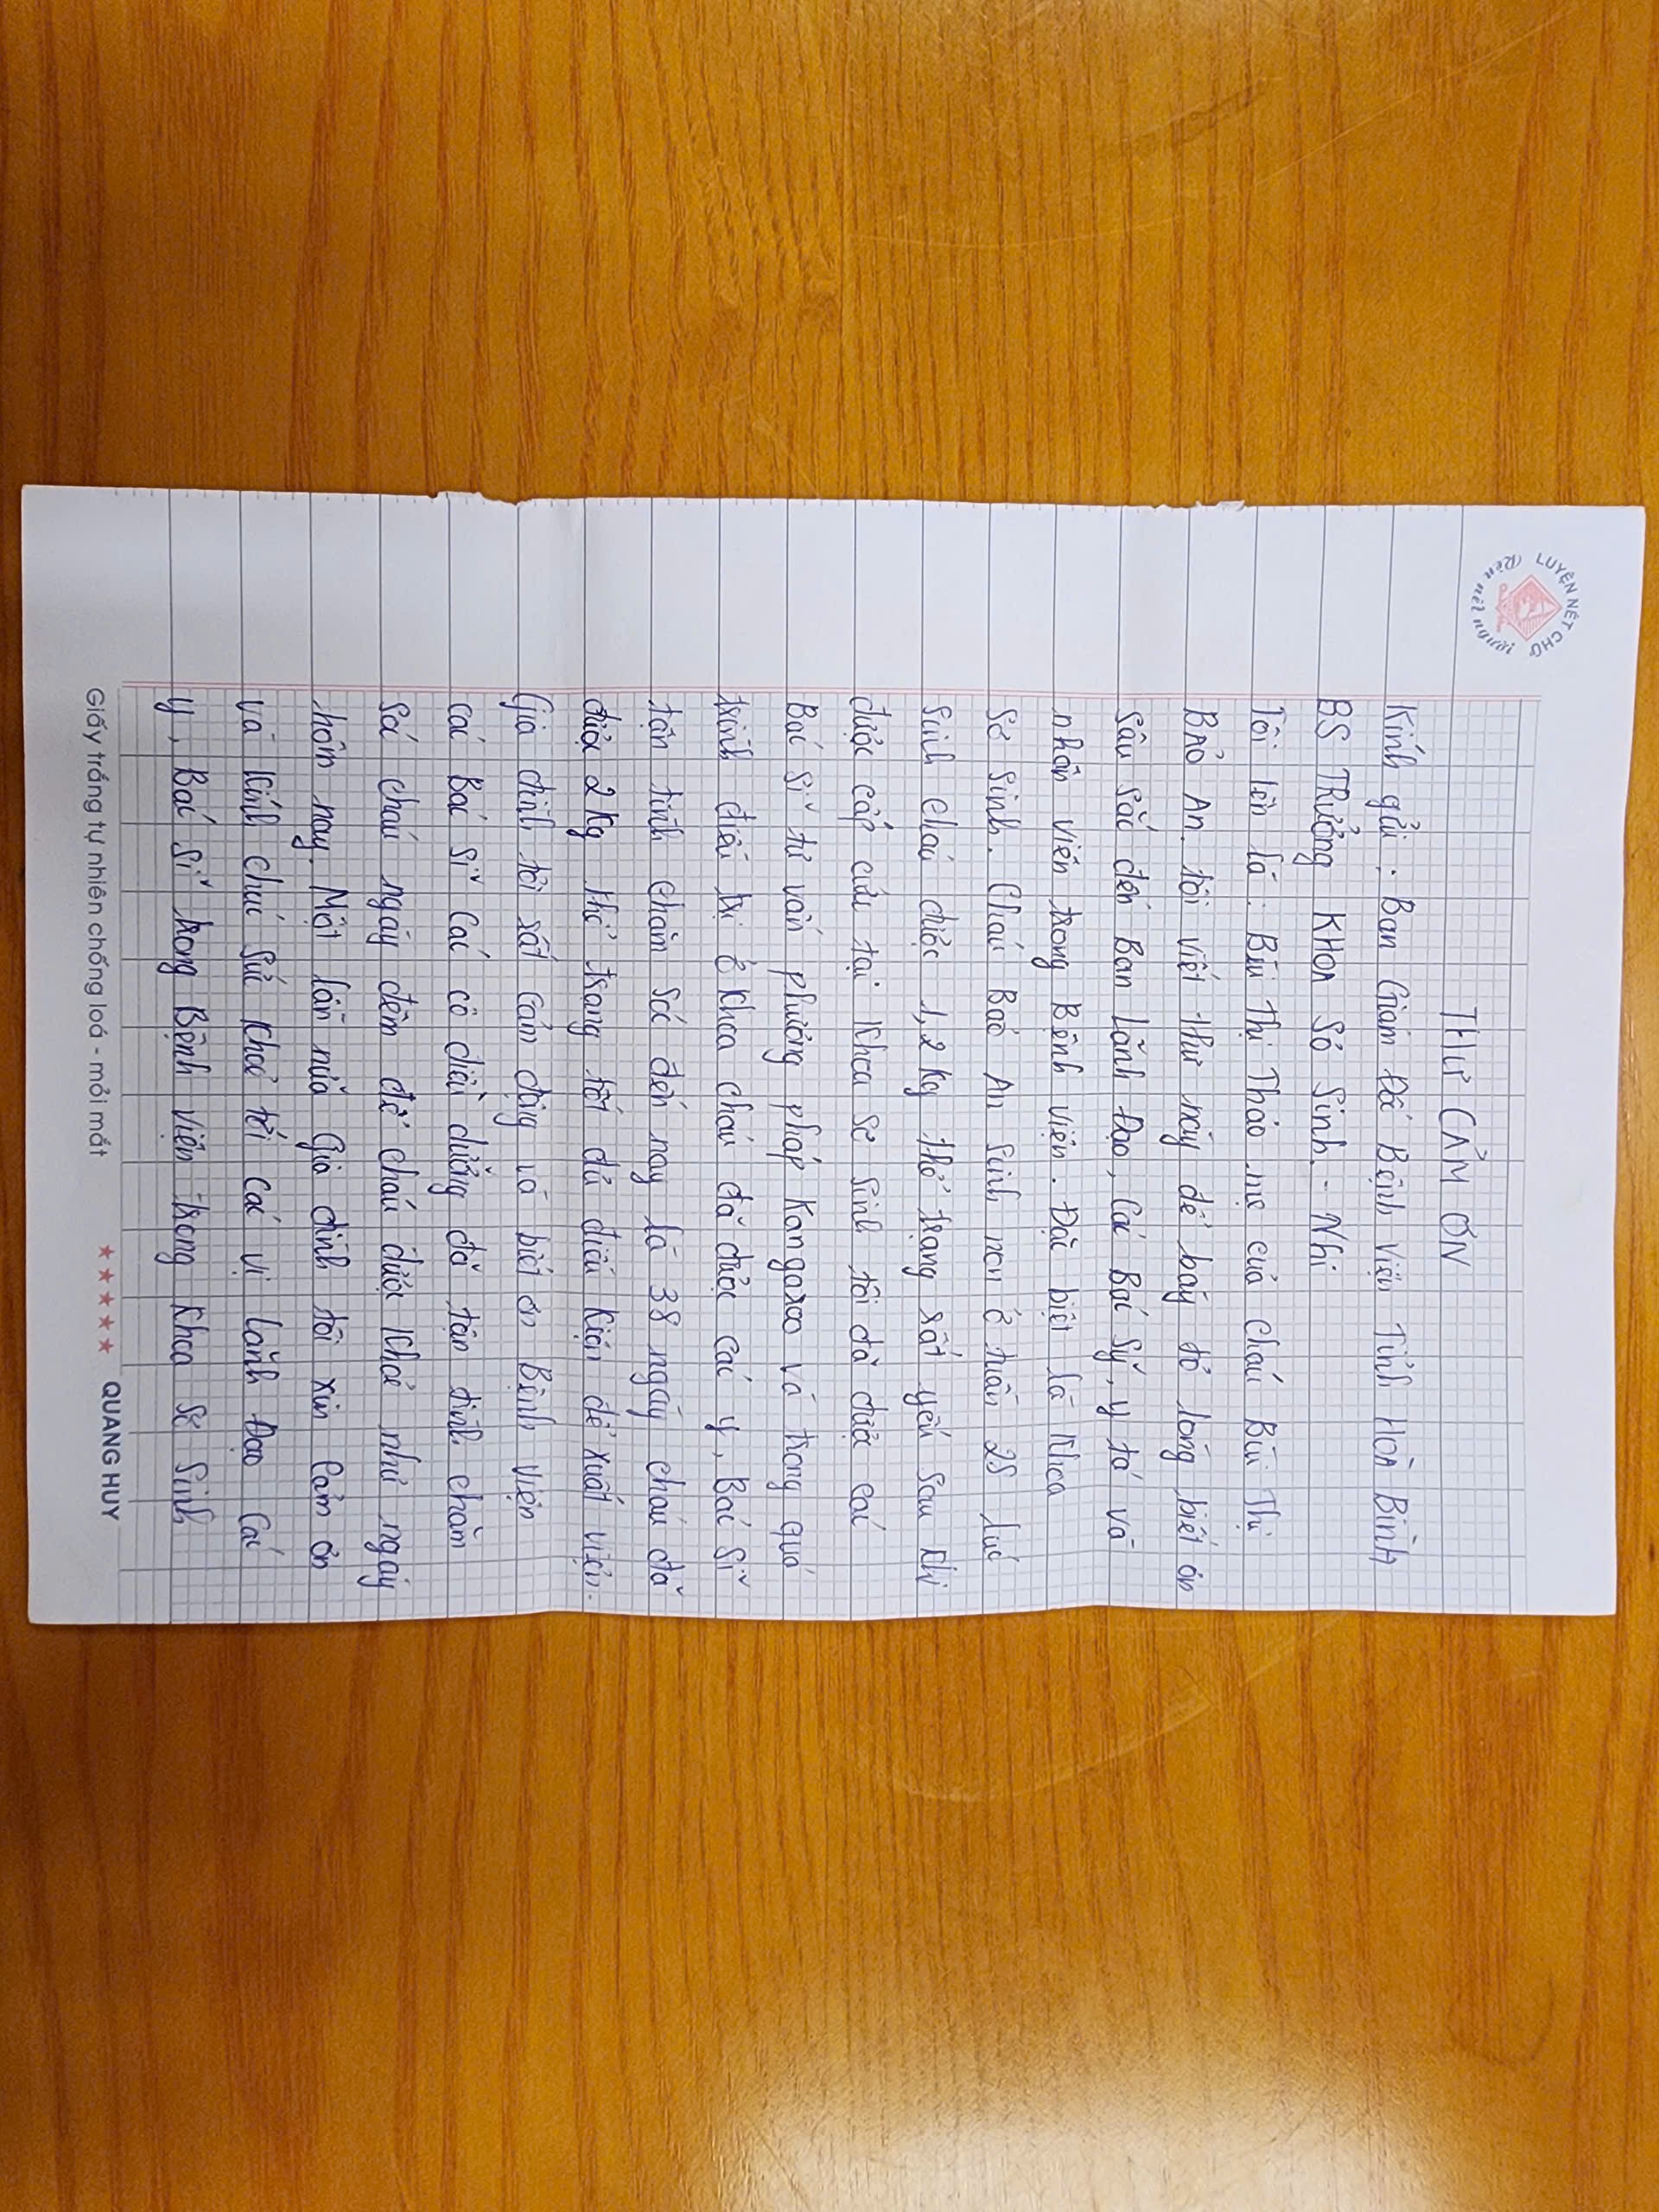 LUYỆN NÉT CHỮ
Rèn nết người
THƯ CẢM ƠN
Kính gửi : Ban Giám Đốc Bệnh Viện Tỉnh Hòa Bình
BS TRưởng KHOA Sơ Sinh - Nhi
Tôi tên là : Bùi Thị Thảo mẹ của cháu Bùi Thị
BẢO AN. tôi viết thư này để bày tỏ lòng biết ơn
sâu sắc đến Ban Lãnh Đạo, Các Bác Sỹ, y tá và
nhân viên trong Bệnh viện. Đặc biệt là khoa
sơ sinh. Cháu Bảo An sinh non ở tuần 28 lúc
sinh cháu được 1,2 kg thể trạng rất yếu sau khi
được cấp cứu tại khoa sơ sinh tôi đã được các
Bác sĩ tư vấn phương pháp Kangaroo và trong quá
trình điều trị ở khoa cháu đã được các y, Bác sĩ
tận tình chăm sóc đến nay là 38 ngày cháu đã
được 2 kg thể trạng tốt đủ điều kiện để xuất viện.
Gia đình tôi rất cảm động và biết ơn Bệnh viện
các Bác sĩ các cô điều dưỡng đã tận tình chăm
sóc cháu ngày đêm để cháu được khoẻ như ngày
hôm nay. Một lần nữa Gia đình tôi xin cảm ơn
và kính chúc sức khoẻ tới các vị lãnh Đạo các
y, Bác sĩ trong Bệnh viện trong khoa sơ sinh
Giấy trắng tự nhiên chống loá - mỏi mắt ★★★★★ QUANG HUY